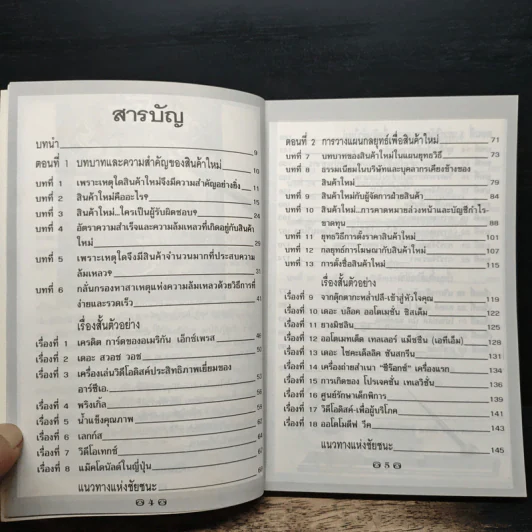 สารบัญ
บทนำ 9
ตอนที่ 1 บทบาทและความสำคัญของสินค้าใหม่ 10
บทที่ 1 เพราะเหตุใดสินค้าใหม่จึงมีความสำคัญอย่างยิ่ง 11
บทที่ 2 สินค้าใหม่คืออะไร?
บทที่ 3 สินค้าใหม่...ใครเป็นผู้รับผิดชอบ? 24
บทที่ 4 อัตราความสำเร็จและความล้มเหลวที่เกิดอยู่กับสินค้า
ใหม่ 25
บทที่ 5 เพราะเหตุใดจึงมีสินค้าจำนวนมากที่ประสบความ
ล้มเหลว? 31
บทที่ 6 กลั่นกรองหาสาเหตุแห่งความล้มเหลวด้วยวิธีการที่
ง่ายและรวดเร็ว 41
เรื่องสั้นตัวอย่าง
เรื่องที่ 1 เครดิต การ์ดของอเมริกัน เอ็กซ์เพรส
เรื่องที่ 2 เดอะ สวอช วอช
เรื่องที่ 3 เครื่องเล่นวิดีโอดิสค์ประสิทธิภาพเยี่ยมของ
อาร์ซีเอ.
เรื่องที่ 4 พริงเกิ้ล
เรื่องที่ 5 น้ำแข็งคุณภาพ
เรื่องที่ 6 เลกก์ส
เรื่องที่ 7 วิดีโอเทกซ์
เรื่องที่ 8 แม็คโดนัลด์ในญี่ปุ่น
แนวทางแห่งชัยชนะ
4
ตอนที่ 2 การวางแผนกลยุทธ์เพื่อสินค้าใหม่ 71
บทที่ 7 บทบาทของสินค้าใหม่ในแผนยุทธวิธี 73
บทที่ 8 ธรรมเนียมในบริษัทและบุคลากรเคียงข้างของ
สินค้าใหม่ 79
บทที่ 9 สินค้าใหม่กับผู้จัดการฝ่ายสินค้า 84
บทที่ 10 สินค้าใหม่...การคาดหมายล่วงหน้าและบัญชีกำไร-
ขาดทุน 88
บทที่ 11 ยุทธวิธีการตั้งราคาสินค้าใหม่ 101
บทที่ 12 กลยุทธ์การโฆษณากับสินค้าใหม่ 107
บทที่ 13 การตั้งชื่อสินค้าใหม่ 115
เรื่องสั้นตัวอย่าง
เรื่องที่ 9 จากตุ๊กตากะหล่ำปลี-เข้าสู่หัวใจคุณ 119
เรื่องที่ 10 เดอะ บล็อค ออโตเมชั่น ซิสเต็ม 122
เรื่องที่ 11 ยางมิชลิน 125
เรื่องที่ 12 ออโตเมเต็ด เทลเลอร์ แม็ชชีน (เอทีเอ็ม) 128
เรื่องที่ 13 เดอะ ไซคะเดิลลิค ซันสกรีน 131
เรื่องที่ 14 เครื่องถ่ายสำเนา "ซีร็อกซ์" เครื่องแรก 134
เรื่องที่ 15 การเกิดของ โปรเจคชั่น เทเลวิชั่น 136
เรื่องที่ 16 ศูนย์รักษาเด็กพิการ 139
เรื่องที่ 17 วิดีโอดิสค์-เพื่อผู้บริโภค 141
เรื่องที่ 18 ออโตโมตีฟ วีค 143
แนวทางแห่งชัยชนะ 145
5